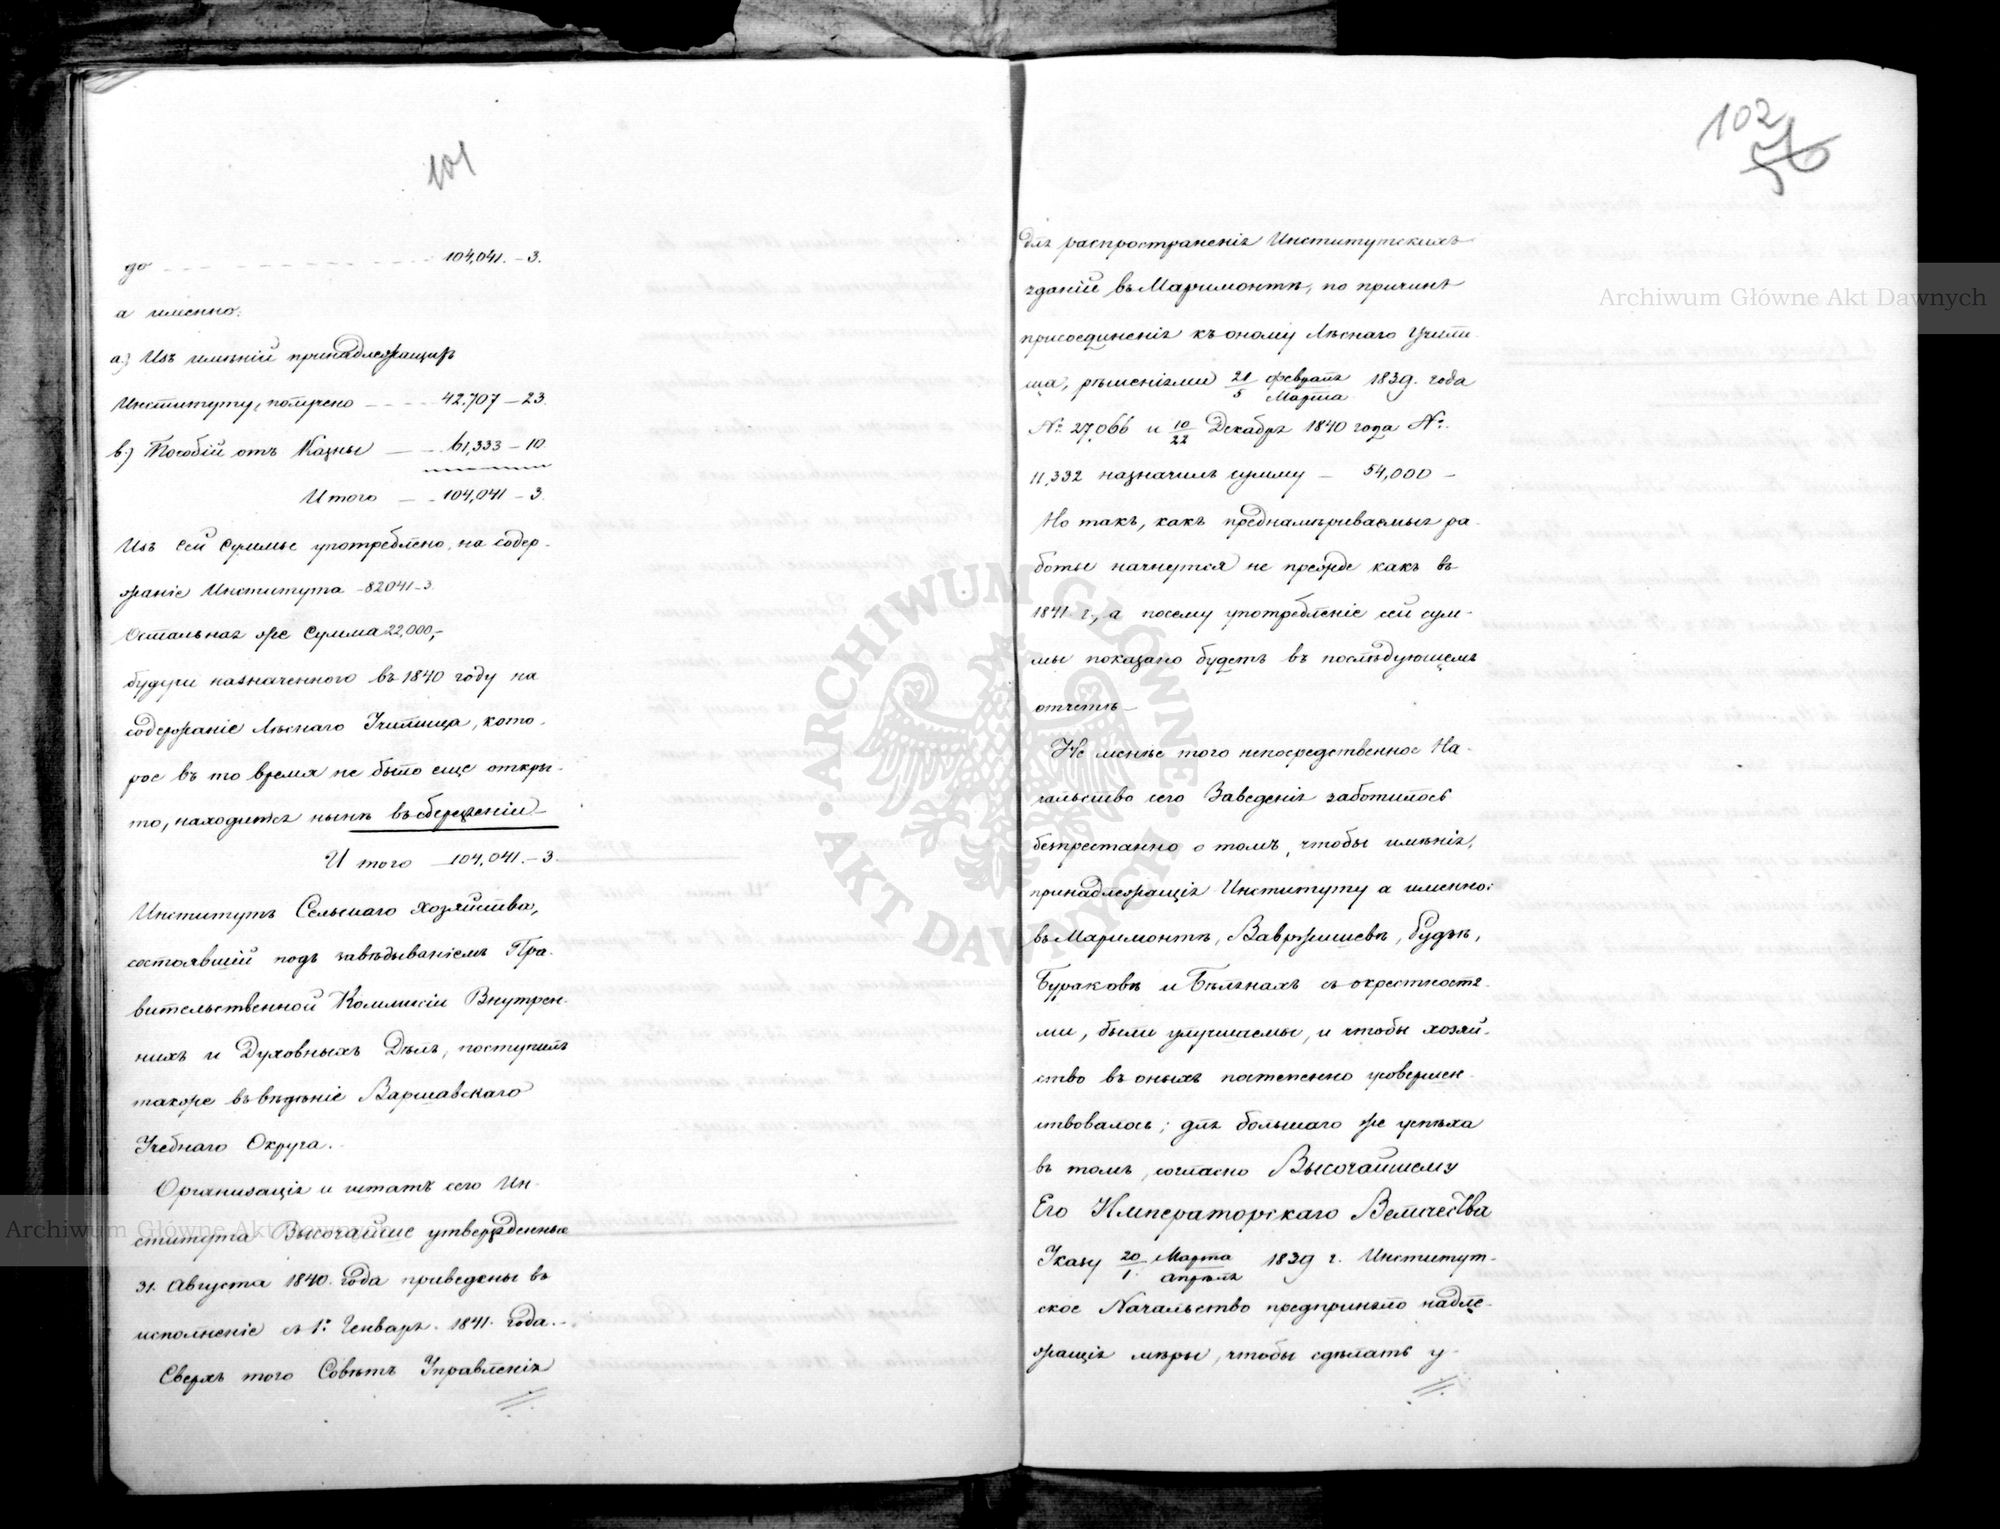 101
до - - - - - - - - - 104,041. - 3.
а именно:
а.) Изъ имѣній принадлежащихъ
Институту, получено - - - 42.707 - 23.
в.) Пособій отъ Казны - - 61,333 - 10
Итого - - 104,041 - 3.
Изъ сей суммы употреблено, на содер-
жаніе Института - 82041 - 3.
Остальная же сумма 22,000,-
будучи назначенного въ 1840 году на
содержаніе Лѣснаго Училища, кото-
рое въ то время не было еще откры-
то, находится нынѣ въ сбереженіи -
Итого - 104,041. - 3.
Институтъ Сельскаго Хозяйства,
состоявшій подъ завѣдываніемъ Пра-
вительственной Коммисіи Внутрен-
нихъ и Духовныхъ Дѣлъ, поступилъ
также въ вѣдѣніе Варшавскаго
Учебнаго Округа.
Организація и штатъ сего Ин-
ститута Высочайше утвержденные
31. Августа 1840. года приведены въ
исполненіе съ 1го Генваря. 1841. года. -
Сверхъ того Совѣтъ Управленія
102
56
для распространенія Институтскихъ
зданій въ Маримонтѣ, по причинѣ
присоединенія къ оному Лѣснаго Учили-
ща, рѣшеніями 21/5 Февраля/Марта 1839. года
№ 27,066 и 10/22 Декабря 1840 года №.
11,332 назначилъ сумму - 54,000 -
Но такъ, какъ преднамѣриваемыя ра-
боты начнутся не прежде какъ въ
1841. г., а посему употребленіе сей сум-
мы показано будетъ въ послѣдующемъ
отчетѣ -
Не менѣе того непосредственное На-
чальство сего Заведенія заботилось
безпрестанно о томъ, чтобы имѣнія,
принадлежащія Институту а именно:
въ Маримонтѣ, Вавржишевѣ, Рудѣ,
Бураковѣ и Бѣлянахъ съ окрестностя-
ми, были улучшаемы, и чтобы хозяй-
ство въ оныхъ постепенно усовершен-
ствовалось; для большаго же успѣха
въ томъ, согласно Высочайшему
Его Императорскаго Величества
Указу 20/1. Марта/Апрѣля 1839 г. Институт-
ское Начальство предприняло надле-
жащія мѣры, чтобы сдѣлать у-
Archiwum Główne Akt Dawnych
Archiwum Główne Akt Dawnych
ARCHIWUM GŁÓWNE · AKT DAWNYCH ·